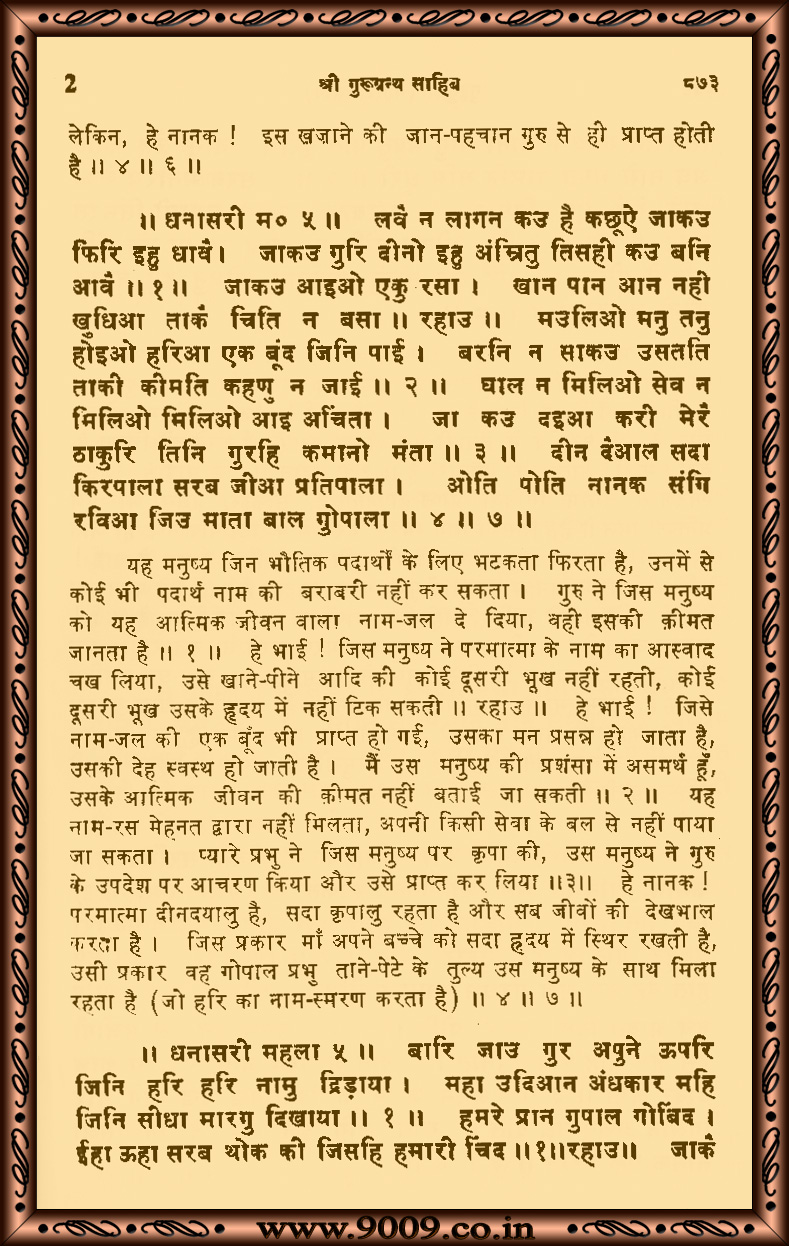 2 श्री गुरूग्रन्थ साहिब ८७३
लेकिन, हे नानक ! इस खज़ाने की जान-पहचान गुरु से ही प्राप्त होती
है ॥ ४ ॥ ६ ॥
॥ धनासरी म० ५ ॥ लवै न लागन कउ है कछूऐ जाकउ
फिरि इहु धावै। जाकउ गुरि दीनो इहु अंम्रितु तिसही कउ बनि
आवै ॥ १ ॥ जाकउ आइओ एकु रसा । खान पान आन नही
खुधिआ ताकै चिति न बसा ॥ रहाउ ॥ मउलिओ मनु तनु
होइओ हरिआ एक बूंद जिनि पाई । बरनि न साकउ उसतति
ताकी कीमति कहणु न जाई ॥ २ ॥ घाल न मिलिओ सेव न
मिलिओ मिलिओ आइ अचिंता । जा कउ दइआ करी मेरै
ठाकुरि तिनि गुरहि कमानो मंता ॥ ३ ॥ दीन दैआल सदा
किरपाला सरब जीआ प्रतिपाला । ओति पोति नानक संगि
रविआ जिउ माता बाल गोपाला ॥ ४ ॥ ७ ॥
यह मनुष्य जिन भौतिक पदार्थों के लिए भटकता फिरता है, उनमें से
कोई भी पदार्थ नाम की बराबरी नहीं कर सकता । गुरु ने जिस मनुष्य
को यह आत्मिक जीवन वाला नाम-जल दे दिया, वही इसकी क़ीमत
जानता है ॥ १ ॥ हे भाई ! जिस मनुष्य ने परमात्मा के नाम का आस्वाद
चख लिया, उसे खाने-पीने आदि की कोई दूसरी भूख नहीं रहती, कोई
दूसरी भूख उसके हृदय में नहीं टिक सकती ॥ रहाउ ॥ हे भाई ! जिसे
नाम-जल की एक बूँद भी प्राप्त हो गई, उसका मन प्रसन्न हो जाता है,
उसकी देह स्वस्थ हो जाती है । मैं उस मनुष्य की प्रशंसा में असमर्थ हूँ,
उसके आत्मिक जीवन की क़ीमत नहीं बताई जा सकती ॥ २ ॥ यह
नाम-रस मेहनत द्वारा नहीं मिलता, अपनी किसी सेवा के बल से नहीं पाया
जा सकता । प्यारे प्रभु ने जिस मनुष्य पर कृपा की, उस मनुष्य ने गुरु
के उपदेश पर आचरण किया और उसे प्राप्त कर लिया ॥३॥ हे नानक !
परमात्मा दीनदयालु है, सदा कृपालु रहता है और सब जीवों की देखभाल
करता है । जिस प्रकार माँ अपने बच्चे को सदा हृदय में स्थिर रखती है,
उसी प्रकार वह गोपाल प्रभु ताने-पेटे के तुल्य उस मनुष्य के साथ मिला
रहता है (जो हरि का नाम-स्मरण करता है) ॥ ४ ॥ ७ ॥
॥ धनासरी महला ५ ॥ बारि जाउ गुर अपुने ऊपरि
जिनि हरि हरि नामु द्रिड़ाया । महा उदिआन अंधकार महि
जिनि सीधा मारगु दिखाया ॥ १ ॥ हमरे प्रान गुपाल गोबिंद ।
ईहा ऊहा सरब थोक की जिसहि हमारी चिंद ॥१॥रहाउ॥ जाकै
www.9009.co.in